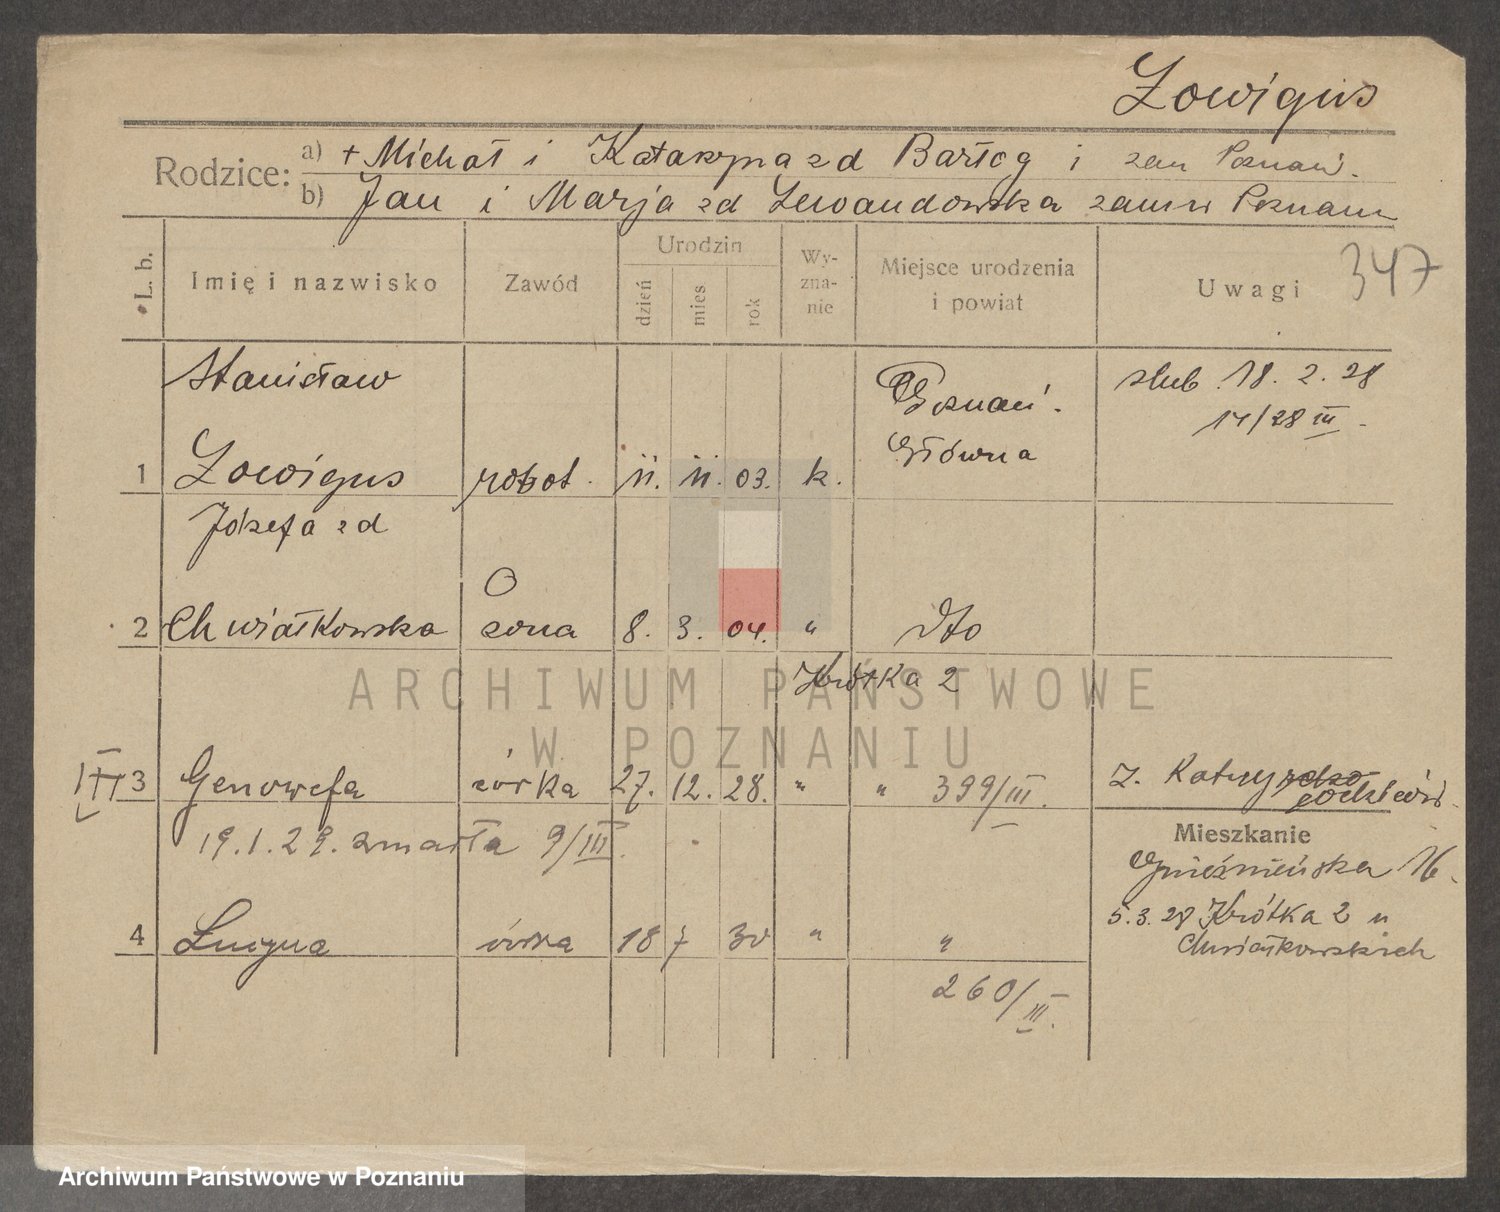 Łowigus
Rodzice: a) + Michał i Katarzyna zd Bartog i zam Poznań.
b) Jan i Marja zd Lewandowska zam w Poznaniu
L. b. Imię i nazwisko Zawód Urodzin dzień mies rok Wy-zna-nie Miejsce urodzenia i powiat Uwagi 347
Stanisław Poznań. ślub 18. 2. 28
Główna 14/28 III
1 Łowigus robot. 11. 11. 03. k.
Józefa zd
2 Chwiałkowska żona 8. 3. 04. " dto
Krótka 2
3 Genowefa córka 27. 12. 28. " " 399/III.
19.1.29. zmarła 9/III.
Mieszkanie
Gnieźnieńska 16.
5.3.28 Krótka 2 u
Chwiałkowskich
4 córka 18 7 30 " "
260/III.
ARCHIWUM PAŃSTWOWE
W POZNANIU
Archiwum Państwowe w Poznaniu